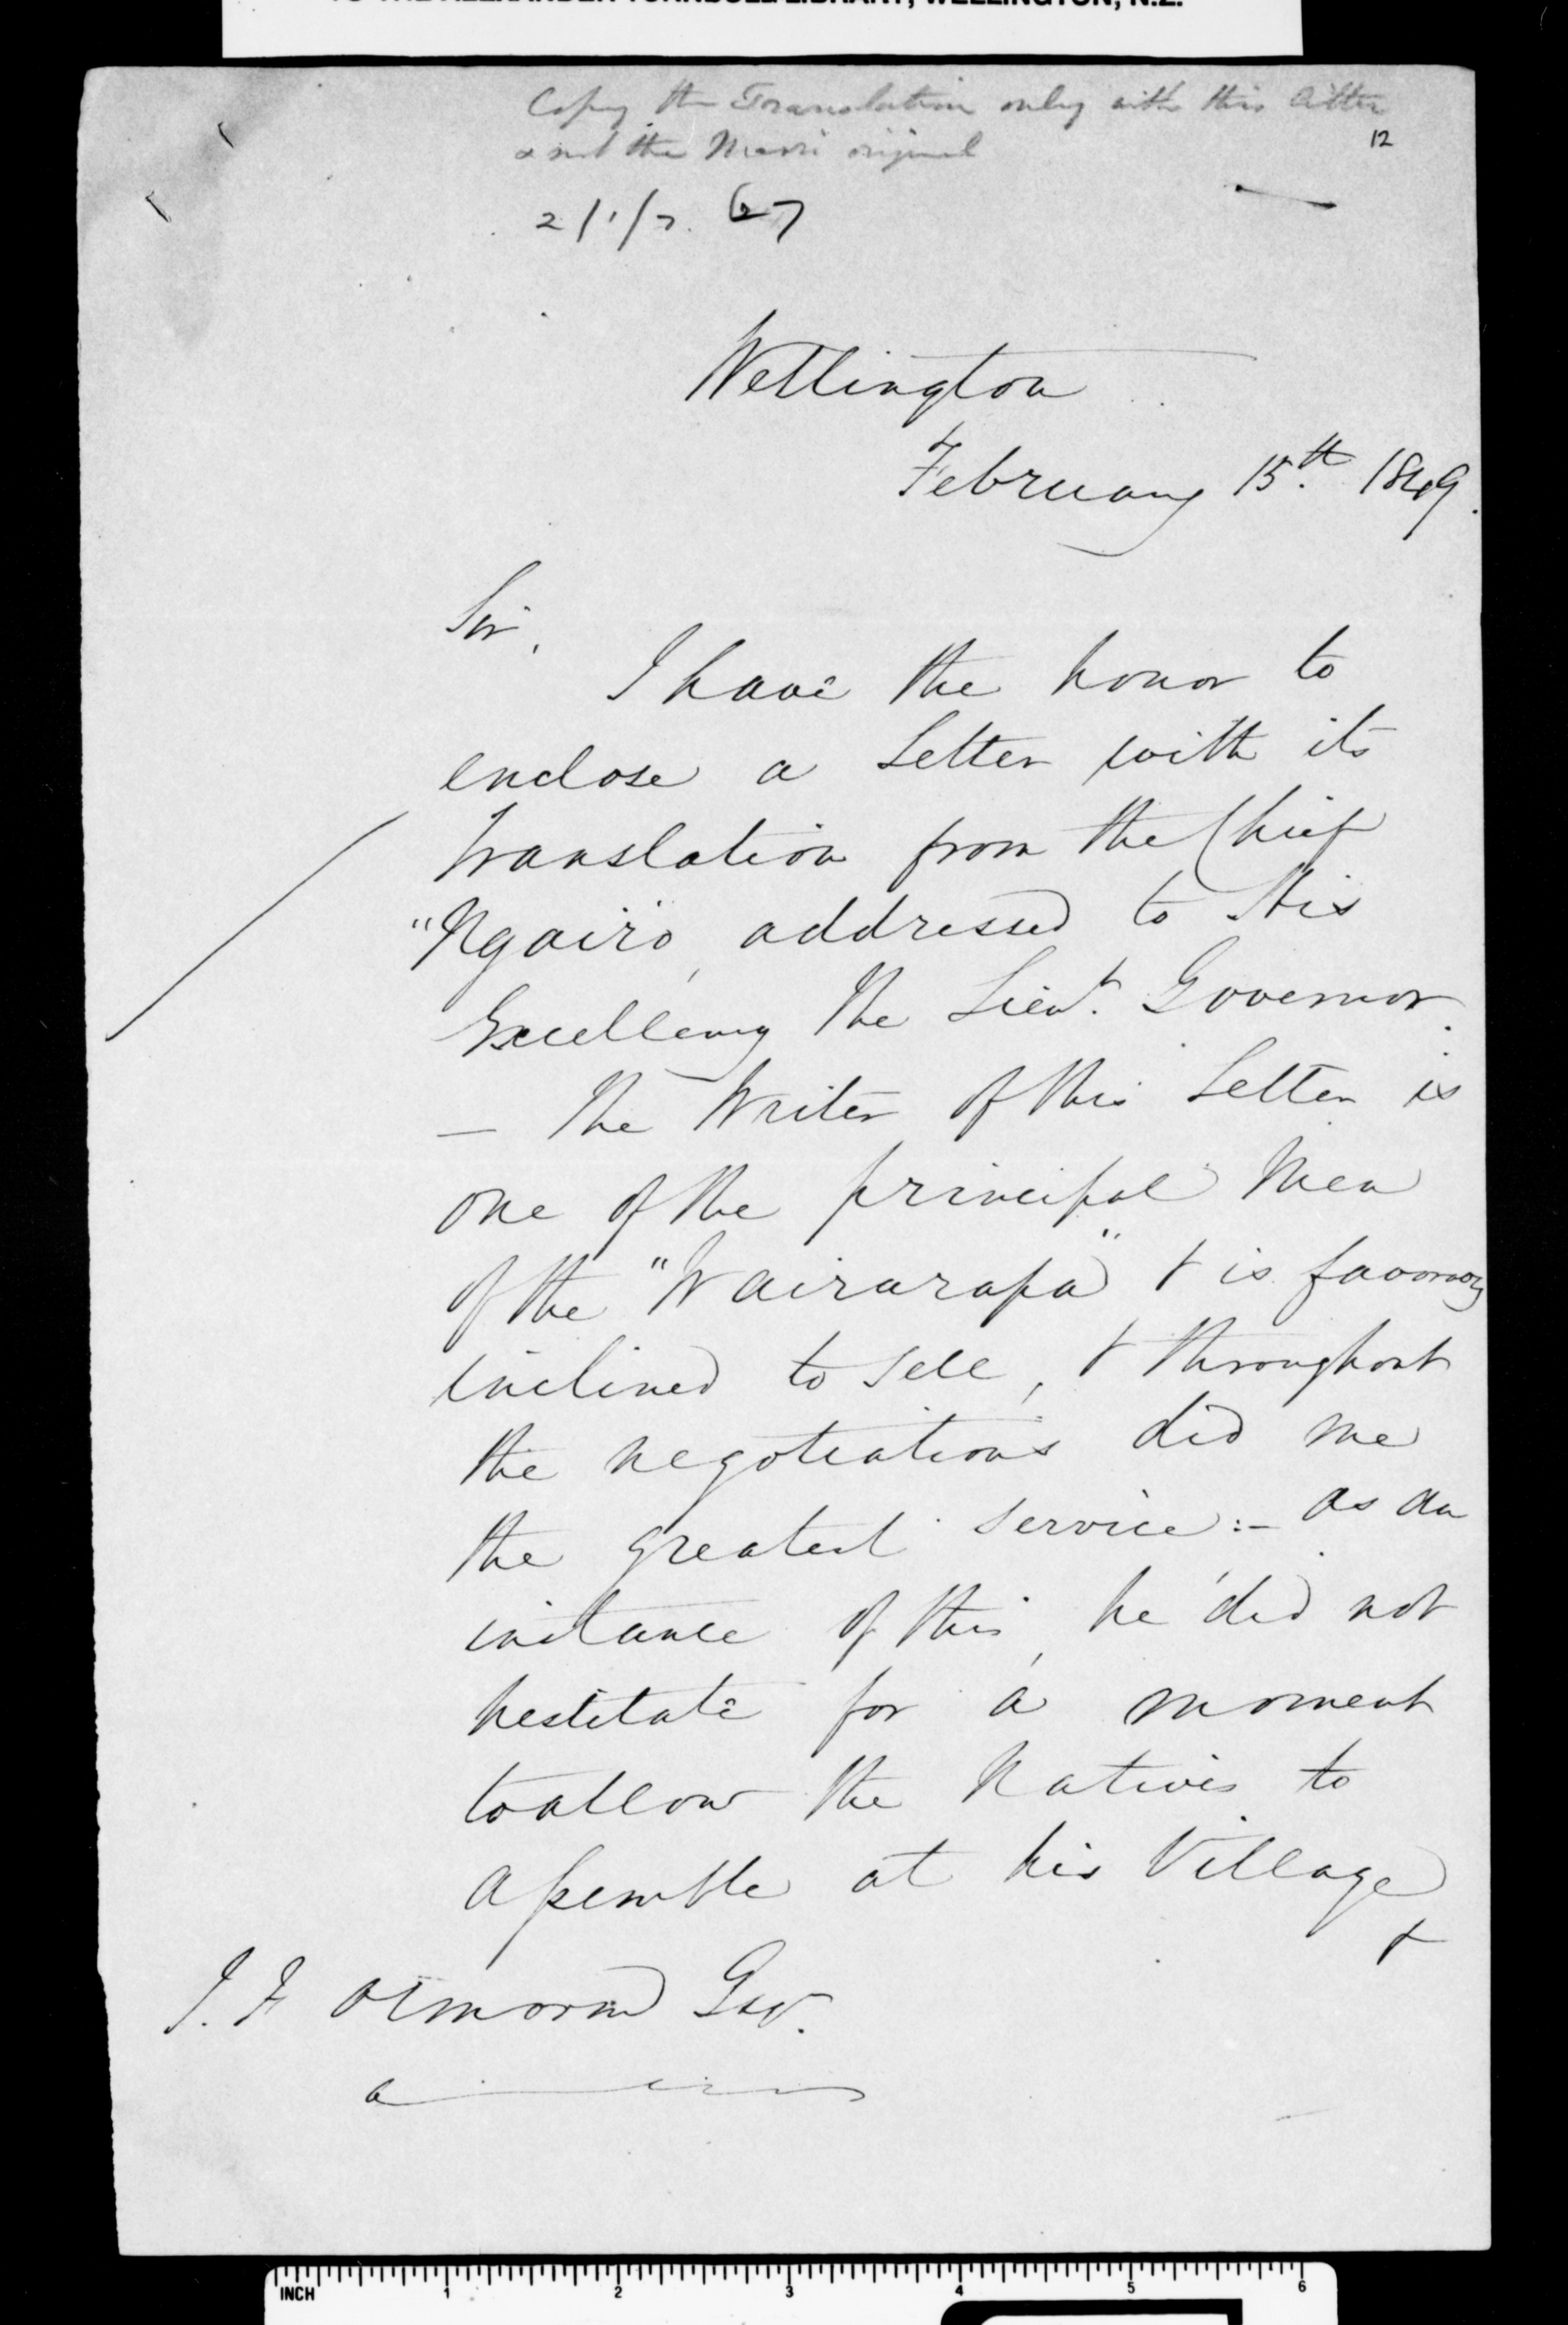 TO THE ALEXANDER TURNBULL LIBRARY, WELLINGTON, N.Z.
Copy the Translation only with this letter
& not the Maori original
12
Wellington
February 15th. 1849.
Sir,
I have the honor to
enclose a Letter with its
translation from the Chief
"Ngairo", addressed to His
Excellency the Lieut. Governor.
— The Writer of this Letter is
one of the principal Men
of the "Wairarapa" & is
inclined to sell, & throughout
the negotiations did me
the greatest service:- as an
instance of this, he did not
hestitate for a moment
to allow the Natives to
assemble at his Village
&
J. D Ormond Esqr.
INCH 1 2 3 4 5 6